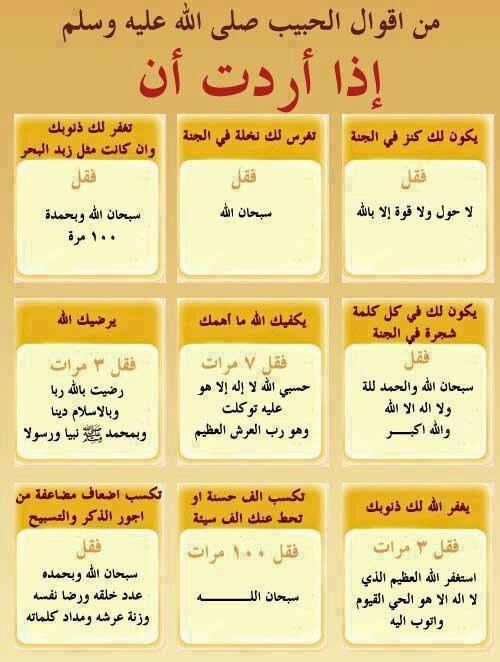 من اقوال الحبيب صلى الله عليه وسلم
إذا أردت أن
يكون لك كنز في الجنة
فقل
لا حول ولا قوة إلا بالله
تغرس لك نخلة في الجنة
فقل
سبحان الله
تغفر لك ذنوبك
وان كانت مثل زبد البحر
فقل
سبحان الله وبحمدة
١٠٠ مرة
يكون لك في كل كلمة
شجرة في الجنة
فقل
سبحان الله والحمد للة
ولا اله الا الله
والله اكبـــر
يكفيك الله ما أهمك
فقل ٧ مرات
حسبي الله لا إله إلا هو
عليه توكلت
وهو رب العرش العظيم
يرضيك الله
فقل ٣ مرات
رضيت بالله ربا
وبالاسلام دينا
وبمحمد ﷺ نبيا ورسولا
يغفر الله لك ذنوبك
فقل ٣ مرات
استغفر الله العظيم الذي
لا اله الا هو الحي القيوم
واتوب اليه
تكسب الف حسنة او
تحط عنك الف سيئة
فقل ١٠٠ مرات
سبحان اللـــــــــه
تكسب اضعاف مضاعفة من
اجور الذكر والتسبيح
فقل
سبحان الله وبحمده
عدد خلقه ورضا نفسه
وزنة عرشه ومداد كلماته